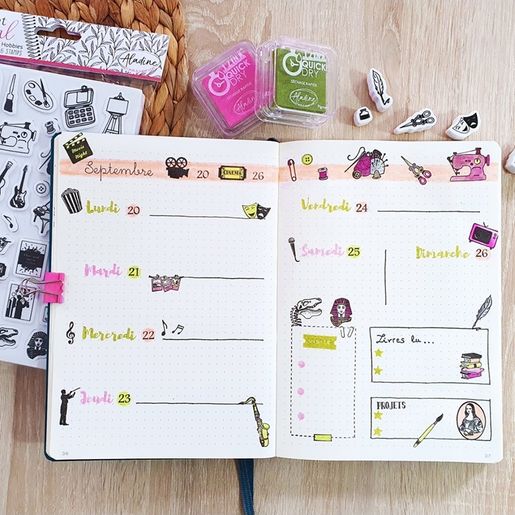 Hobbies
STAMPS
Aladine
QUICK
DRY
QUICK
DRY
SÉCHAGE RAPIDE
Aladine
Movie
Night
Septembre
20
CINEMA
26
Lundi 20
Mardi 21
Mercredi 22
Jeudi 23
Vendredi 24
Samedi 25
Dimanche 26
Livres lu...
PROJETS
36
37